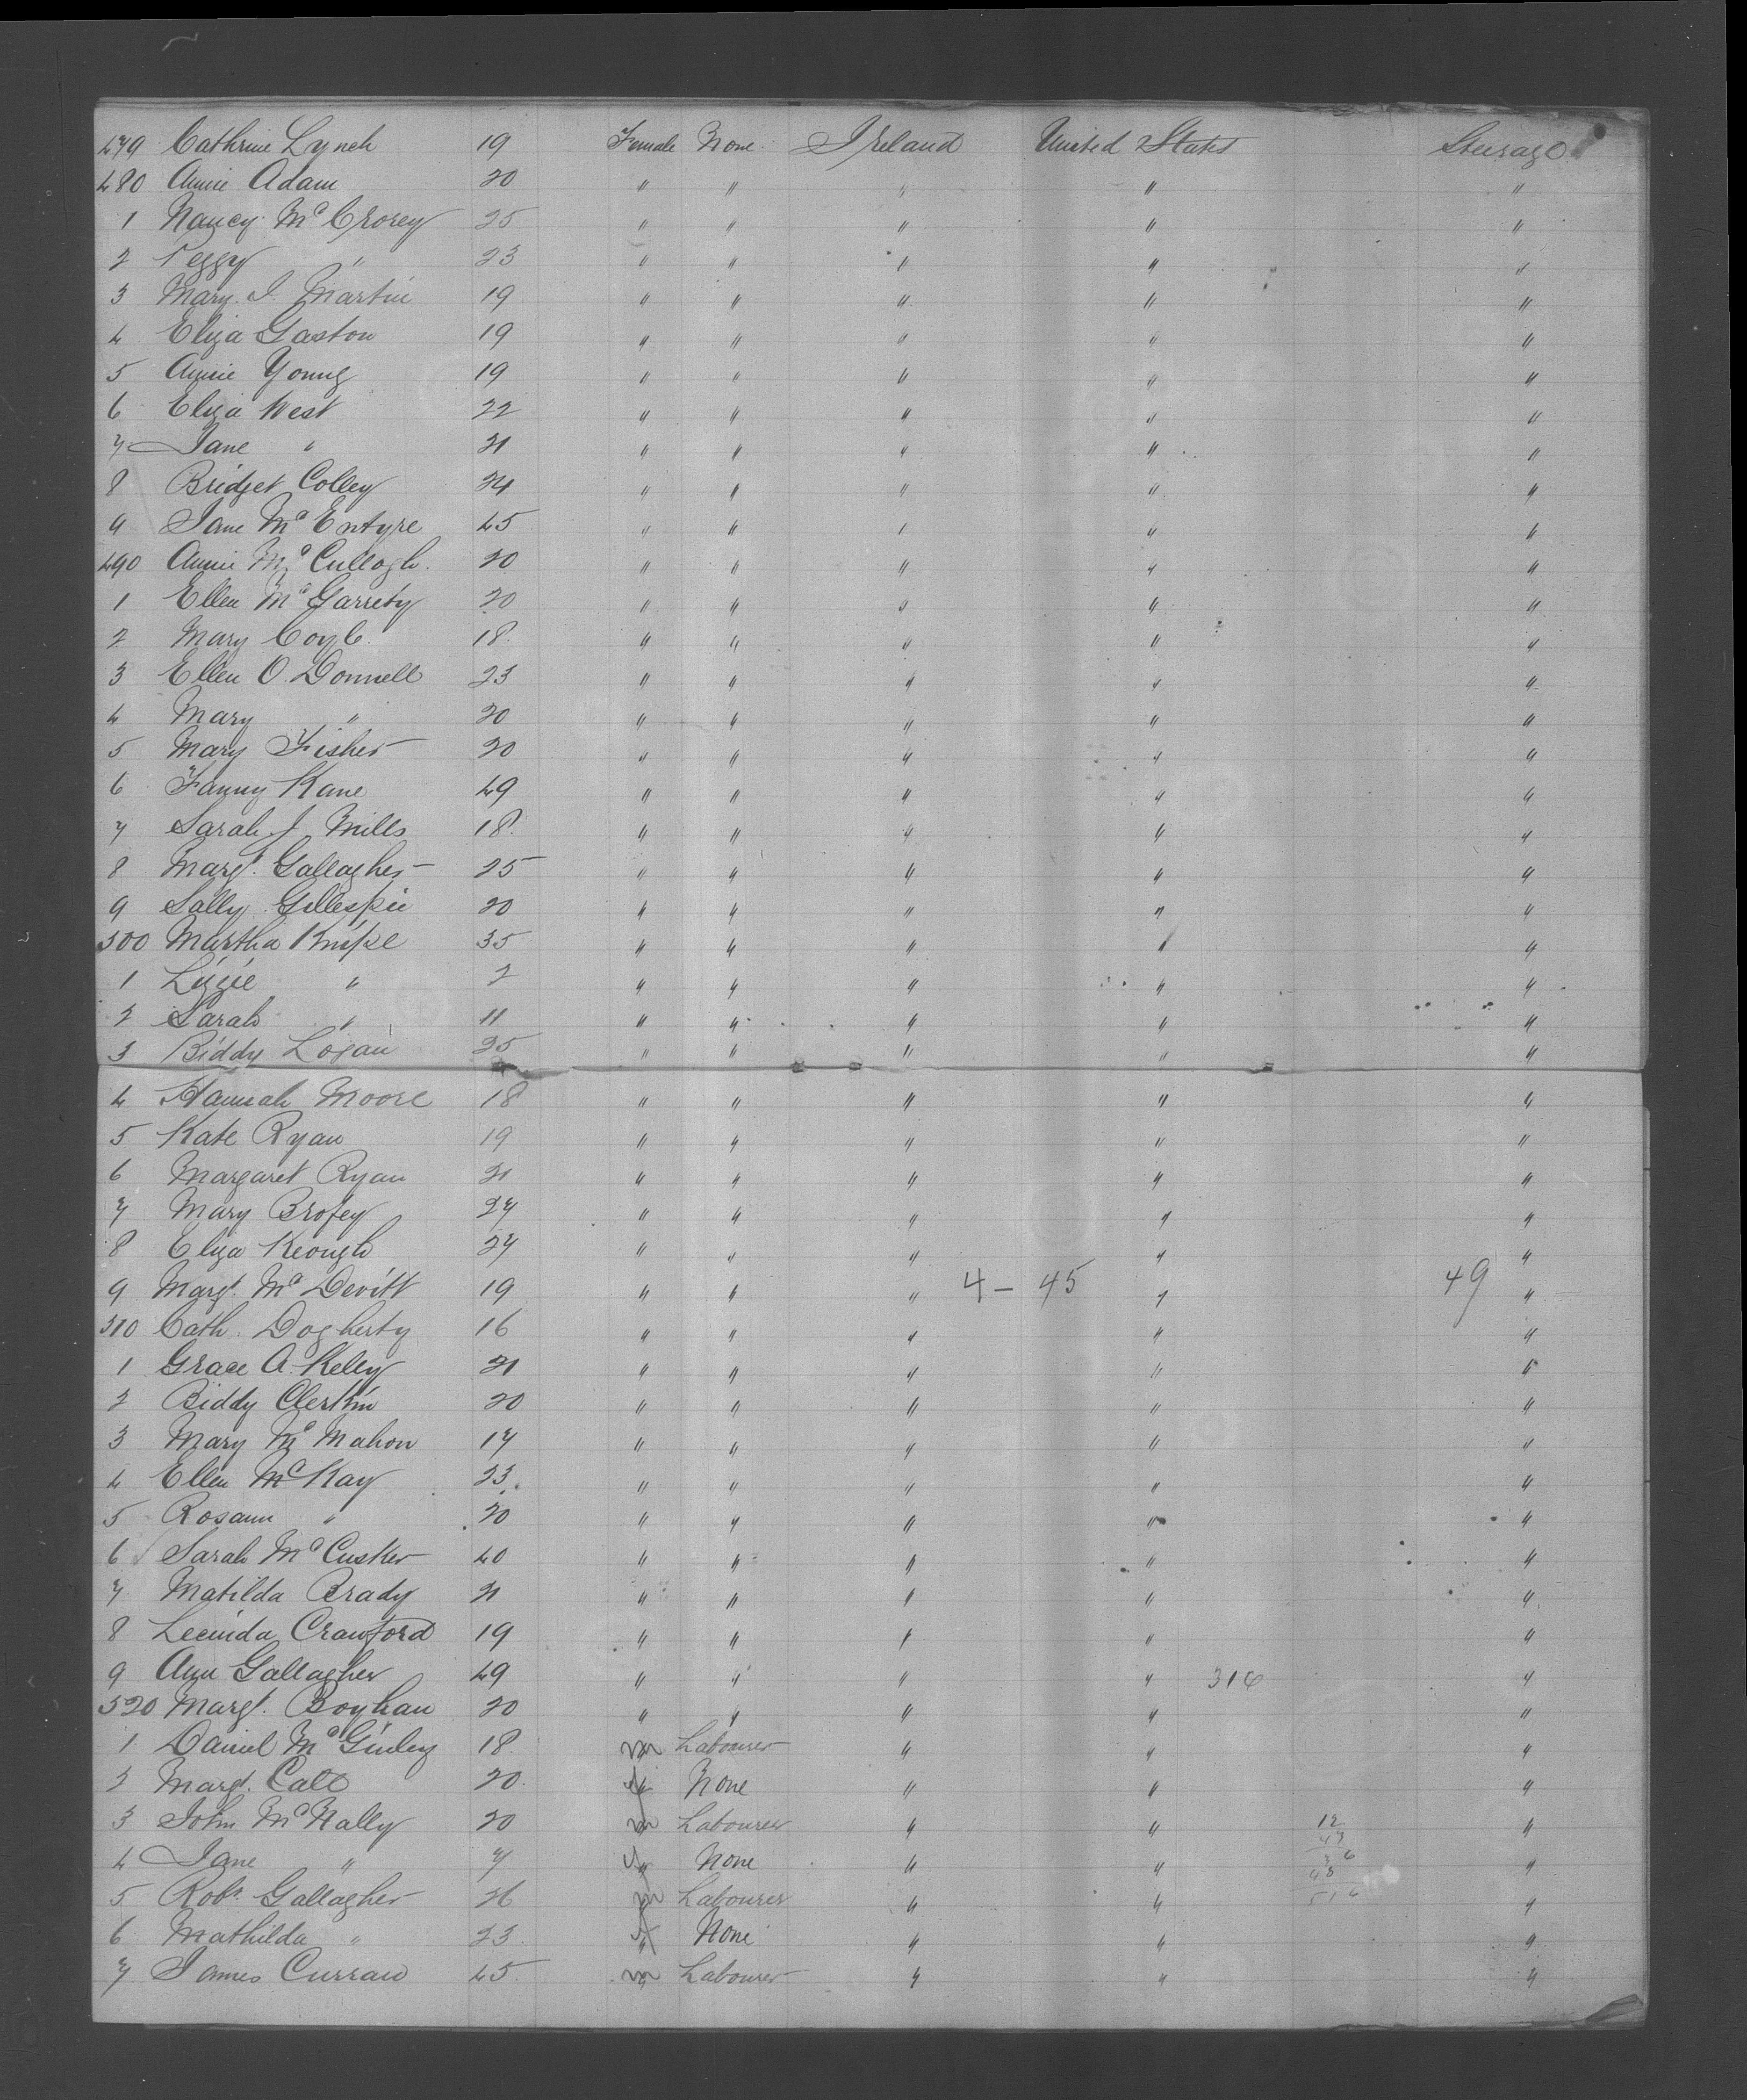 479 Cathrine Lynch 19 Female None Ireland United States Steerage
480 Annie Adam 20 " " " " "
1 Nancy McCrorey 25 " " " " "
2 Peggy " 23 " " " " "
3 Mary J. Martin 19 " " " " "
4 Eliza Gaston 19 " " " " "
5 Annie Young 19 " " " " "
6 Eliza West 22 " " " " "
7 Jane " 21 " " " " "
8 Bridget Colley 24 " " " " "
9 Jane McEntyre 45 " " " " "
490 Annie McCullogh. 20 " " " " "
1 Ellen McGarrety 20 " " " " "
2 Mary Coyle 18 " " " " "
3 Ellen O. Donnell 23 " " " " "
4 Mary " 20 " " " " "
5 Mary Fisher 20 " " " " "
6 Fanny Kane 49 " " " " "
7 Sarah J Mills 18 " " " " "
8 Margt. Gallagher 25 " " " " "
9 Sally Gillespie 20 " " " " "
500 Martha Knipe 35 " " " " "
1 Lizzie " 2 " " " " "
2 Sarah " 11 " " " " "
3 Biddy Logan 25 " " " " "
4 Hannah Moore 18 " " " " "
5 Kate Ryan 19 " " " " "
6 Margaret Ryan 21 " " " " "
7 Mary Brofey 27 " " " " "
8 Eliza Keough 27 " " " " "
9 Margt. McDevitt 19 " " " 4 - 45 " 49 "
510 Cath. Dogherty 16 " " " " "
1 Grace A. Kelley 21 " " " " "
2 Biddy Clerkin 20 " " " " "
3 Mary McMahon 17 " " " " "
4 Ellen McKay 23 " " " " "
5 Rosann " 20 " " " " "
6 Sarah McCusker 40 " " " " "
7 Matilda Brady 21 " " " " "
8 Lecinda Crawford 19 " " " " "
9 Ann Gallagher 49 " " " " 316 "
520 Margt. Boyhan 20 " " " " "
1 Daniel McGinley 18 m Labourer " " "
2 Margt. Call 20 f None " " "
3 John McNally 20 m Labourer " " 12 "
4 Jane " 7 f None " " "
5 Robt. Gallagher 26 m Labourer " " 516 "
6 Mathilda " 23 f None " " "
7 James Curran 45 m Labourer " " "